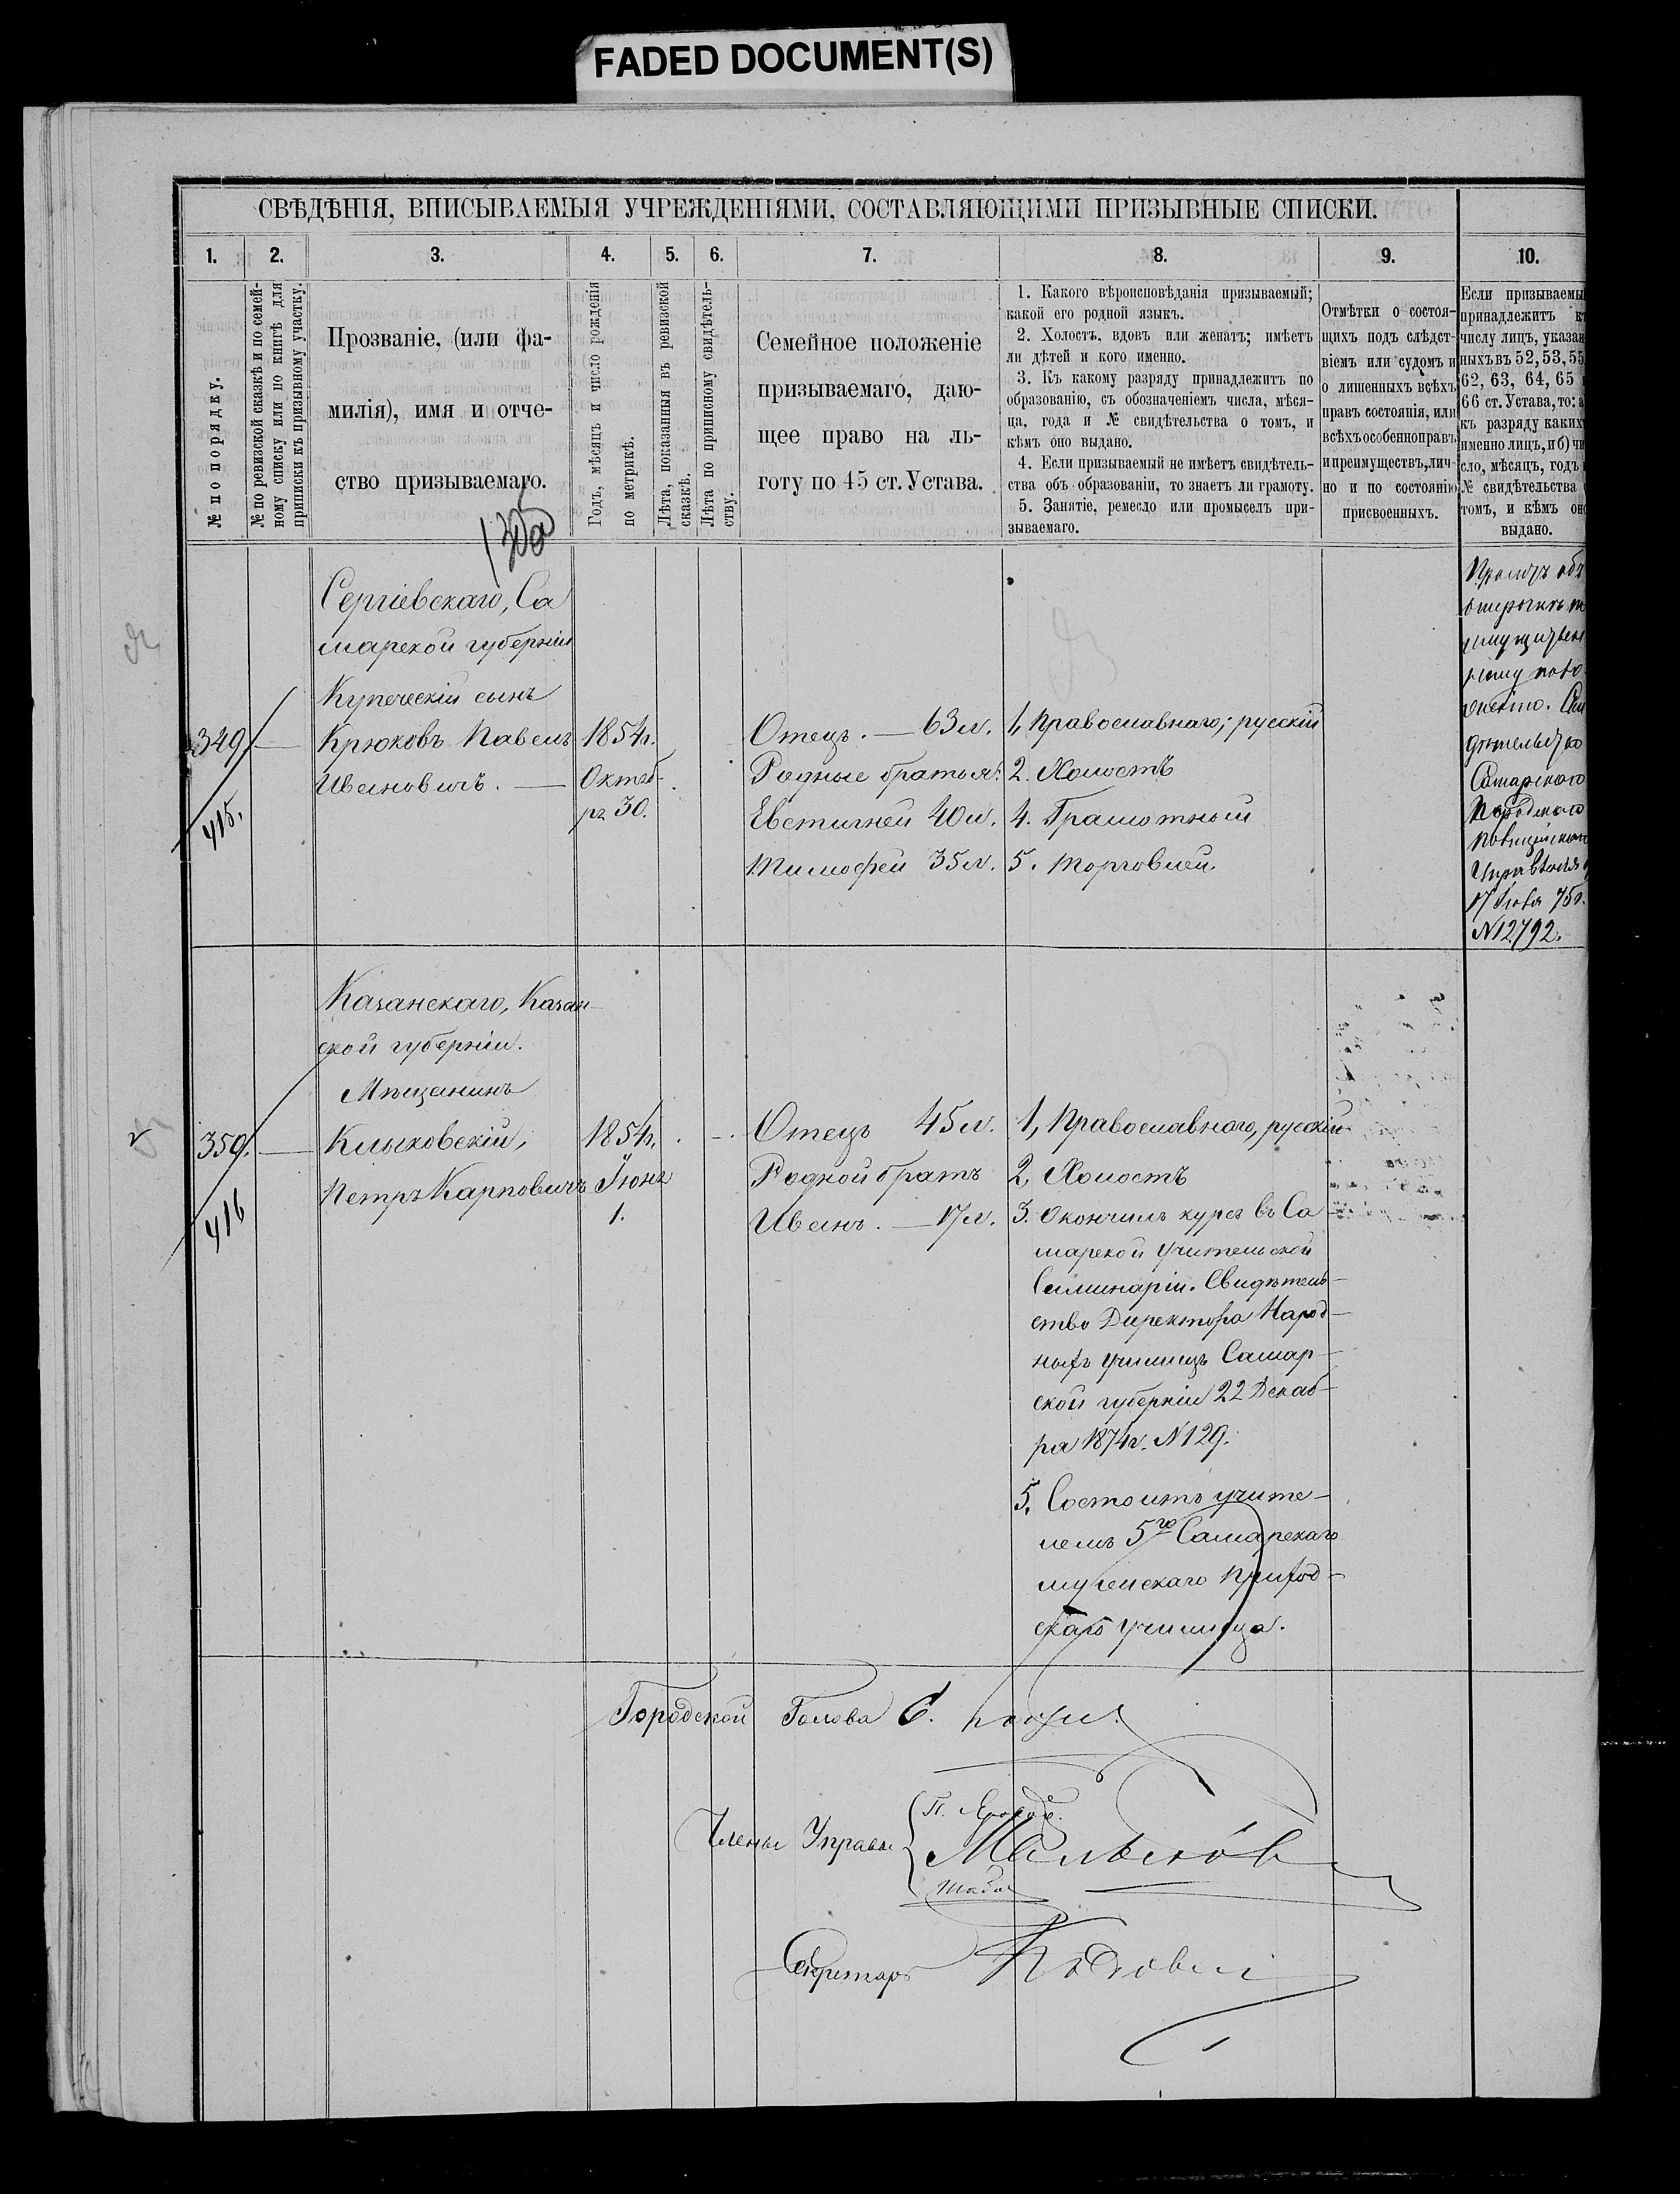 FADED DOCUMENT(S)
СВѢДѢНІЯ, ВПИСЫВАЕМЫЯ УЧРЕЖДЕНІЯМИ, СОСТАВЛЯЮЩИМИ ПРИЗЫВНЫЕ СПИСКИ.
1. 2. 3. 4. 5. 6. 7. 8. 9. 10.
№ по порядку.
№ по ревизской сказкѣ и по семей-
ному списку или по книгѣ для
приписки къ призывному участку.
Прозваніе, (или фа-
милія), имя и отче-
ство призываемаго.
Годъ, мѣсяцъ и число рожденія
по метрикѣ.
Лѣта, показанныя въ ревизской
сказкѣ.
Лѣта по приписному свидѣтель-
ству.
Семейное положеніе
призываемаго, даю-
щее право на ль-
готу по 45 ст. Устава.
1. Какого вѣроисповѣданія призываемый;
какой его родной языкъ.
2. Холостъ, вдовъ или женатъ; имѣетъ
ли дѣтей и кого именно.
3. Къ какому разряду принадлежитъ по
образованію, съ обозначеніемъ числа, мѣся-
ца, года и № свидѣтельства о томъ, и
кѣмъ оно выдано.
4. Если призываемый не имѣетъ свидѣтель-
ства объ образованіи, то знаетъ ли грамоту.
5. Занятіе, ремесло или промыселъ при-
зываемаго.
Отмѣтки о состоя-
щихъ подъ слѣдст-
віемъ или судомъ и
о лишенныхъ всѣхъ
правъ состоянія, или
всѣхъ особенно правъ
и преимуществъ, лич-
но и по состоянію
присвоенныхъ.
Если призываемы
принадлежитъ къ
числу лицъ, указан
ныхъ въ 52, 53, 55
62, 63, 64, 65
66 ст. Устава, то: а
къ разряду какихъ
именно лицъ, и б) чи
сло, мѣсяцъ, годъ
№ свидѣтельства
томъ, и кѣмъ оно
выдано.
Сергіевскаго, Са
марской губерніи
Купеческій сынъ
349 Крюковъ Павелъ 1854г.
Ивановичъ. Октяб-
ря 30.
415.
Отецъ. — 63 л.
Родные братья:
Евстигней 40 л.
Тимофей 35 л.
1, Православнаго; русскій
2. Холостъ
4. Грамотный
5. Торговлей.
Самарскаго
Городскаго
17 75г.
№12792.
Казанскаго, Казан-
ской губерніи.
Мѣщанинъ
350. Клыковскій, 1854г.
Петръ Карповичъ Іюня
1.
416
Отецъ 45 л.
Родной братъ
Иванъ. — 17 л.
1, Православнаго, русскій
2, Холостъ
3. Окончилъ курсъ въ Са
марской Учительской
Семинаріи. Свидѣтель-
ство Директора Народ-
ныхъ Училищъ Самар-
ской губерніи 22 Декаб-
ря 1874г. №129.
5, Состоитъ учите-
лемъ 5го Самарскаго
мужескаго Приход-
скаго Училища.
Городской Голова
Члены Управы
Секретарь